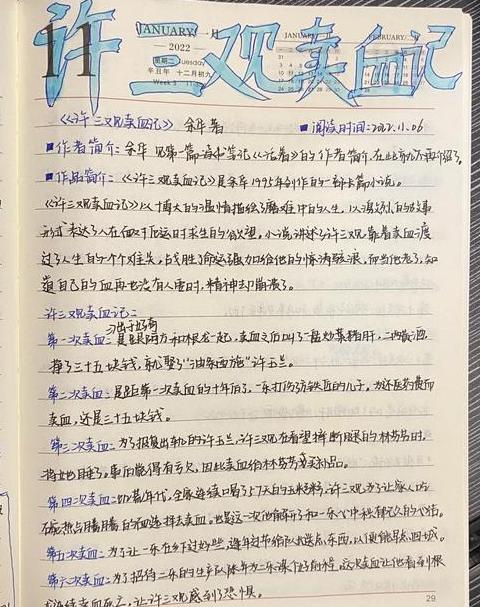 许三观卖血记
11
JANUARY 一月
2022
星期二 Tuesday
辛丑年 十二月初九
Week 3
JANUARY 一月
FEBRUARY 二月
《许三观卖血记》 余华 著 ■阅读时间:2022.11.06
■作者简介:余华 见第一篇读书笔记《活着》的作者简介,在此就不再介绍了。
■作品简介:《许三观卖血记》是余华1995年创作的一部长篇小说。
《许三观卖血记》以博大的温情描绘了磨难中的人生,以激烈的故事
形式表达了人在面对厄运时求生的欲望。小说讲述了许三观靠着卖血渡
过了人生的一个个难关,战胜了命运强加给他的惊涛骇浪,而当他老了,知
道自己的血再也没有人要时,精神却崩溃了。
许三观卖血记:
第一次卖血:出于好奇 是跟阿方和根龙一起,卖血之后叫了一盘炒猪肝,二两黄酒,
挣了三十五块钱,就娶了"油条西施"许玉兰。
第二次卖血:是距第一次卖血的十年后了,一乐打伤方铁匠的儿子,为还医药费而
卖血,还是三十五块钱。
第三次卖血:为了报复出轨的许玉兰,许三观在看望摔断腿的林芬芳时,
将她睡了。事后觉得有亏欠,因此卖血给林芬芳买补品。
第四次卖血:饥荒年代,全家连续喝了57天的玉米粥,许三观为了让家人吃
碗热气腾腾的面选择去卖血,也是这一次他解开了和一乐
第五次卖血:为了让一乐在乡下过好些,逢年过节给队长送点东西,以便能早点回城。
第六次卖血:为了招待二乐的生产队队长为二乐谋个好前程,这次卖血让他看到根
龙连续卖血死亡,让许三观感到了恐惧。
29